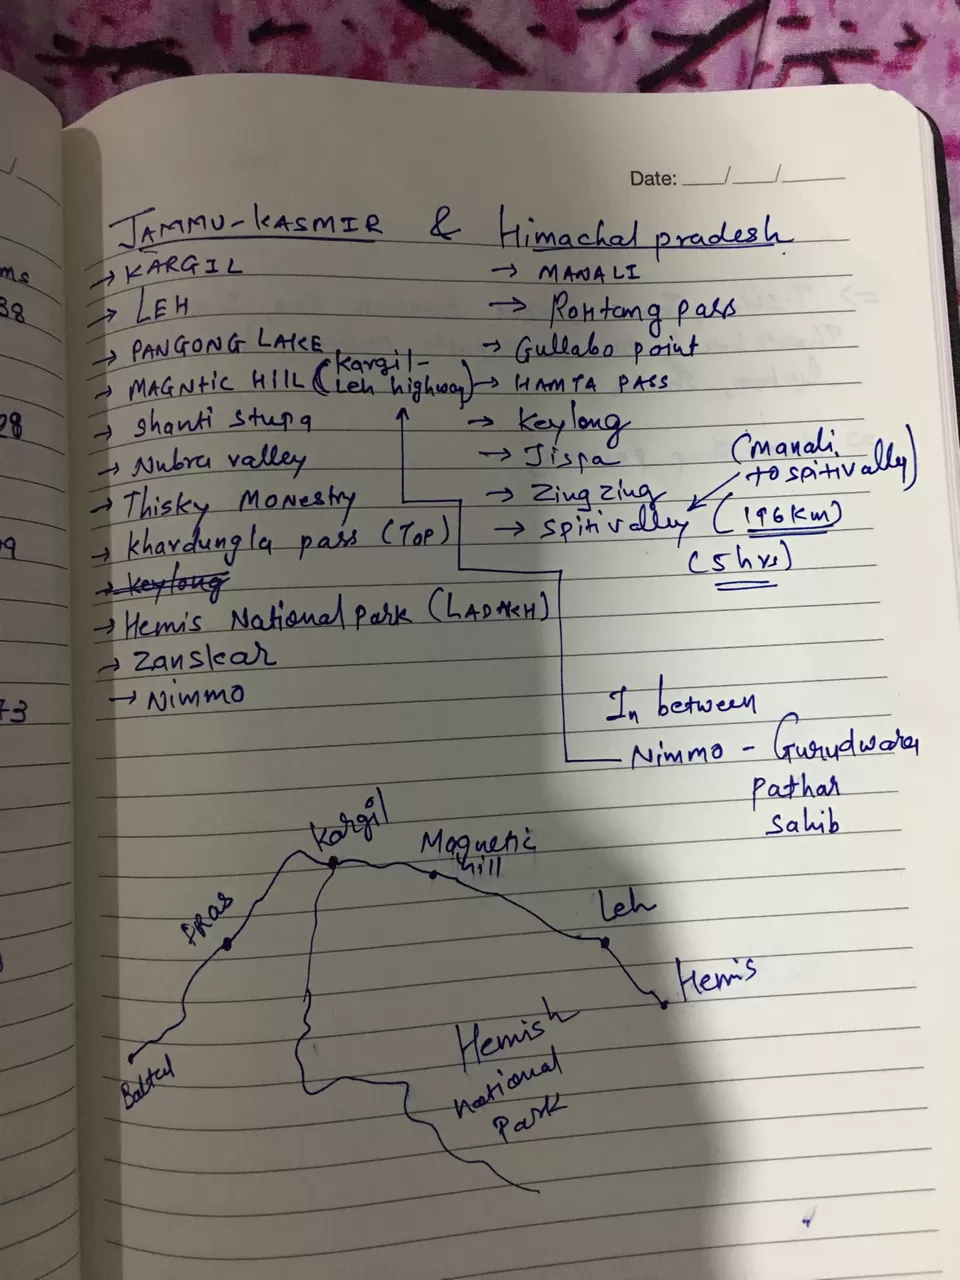 Date: __/__/____
JAMMU-KASMIR & Himachal pradesh
→ KARGIL
→ LEH
→ PANGONG LAKE
→ MAGNtic HIll (Kargil-
Leh highway)
→ shanti stupa
→ Nubra valley
→ Thisky Monestry
→ khardungla pass (Top)
→ keylong
→ Hemis National park (LADAKH)
→ Zanskar
→ Nimmo
→ MANALI
→ Rohtang pass
→ Gullabo point
→ HAMTA PASS
→ Keylong
→ Jispa
→ Zing zing
→ spiti valley (196km)
(Manali
to spiti vally)
(5hrs)
In between
Nimmo - Gurudwara
pathar
sahib
Kargil
Magnetic
hill
DRAS
Leh
Hemis
Baltal
Hemish
national
park
ms
38
28
73